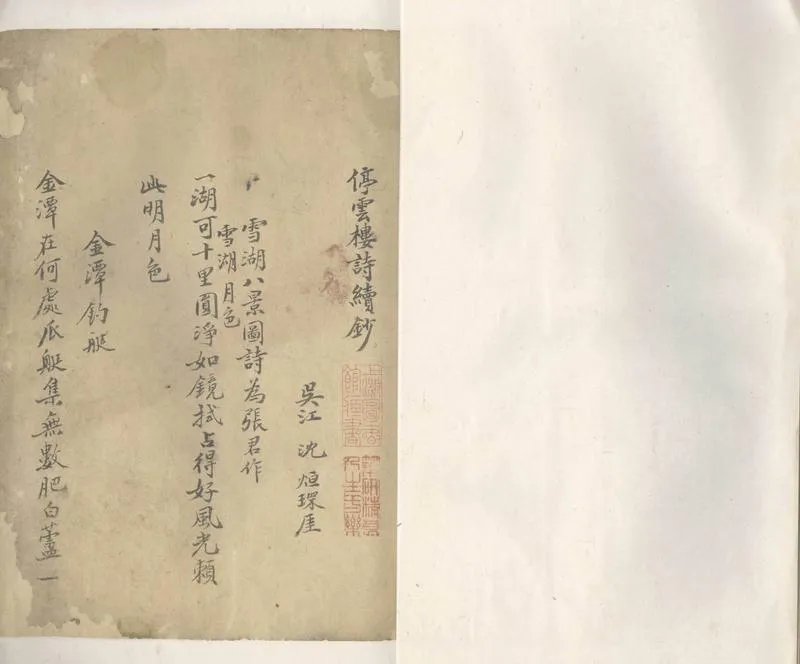 停雲樓詩續鈔
筆研精良人生一樂
吳江 沈 烜琛厓
雪湖八景圖詩為張君作
雪湖月色
一湖可十里圓淨如鏡拭占得好風光賴
此明月色
金潭釣艇
金潭在何處瓜艇集無數肥白蘆一